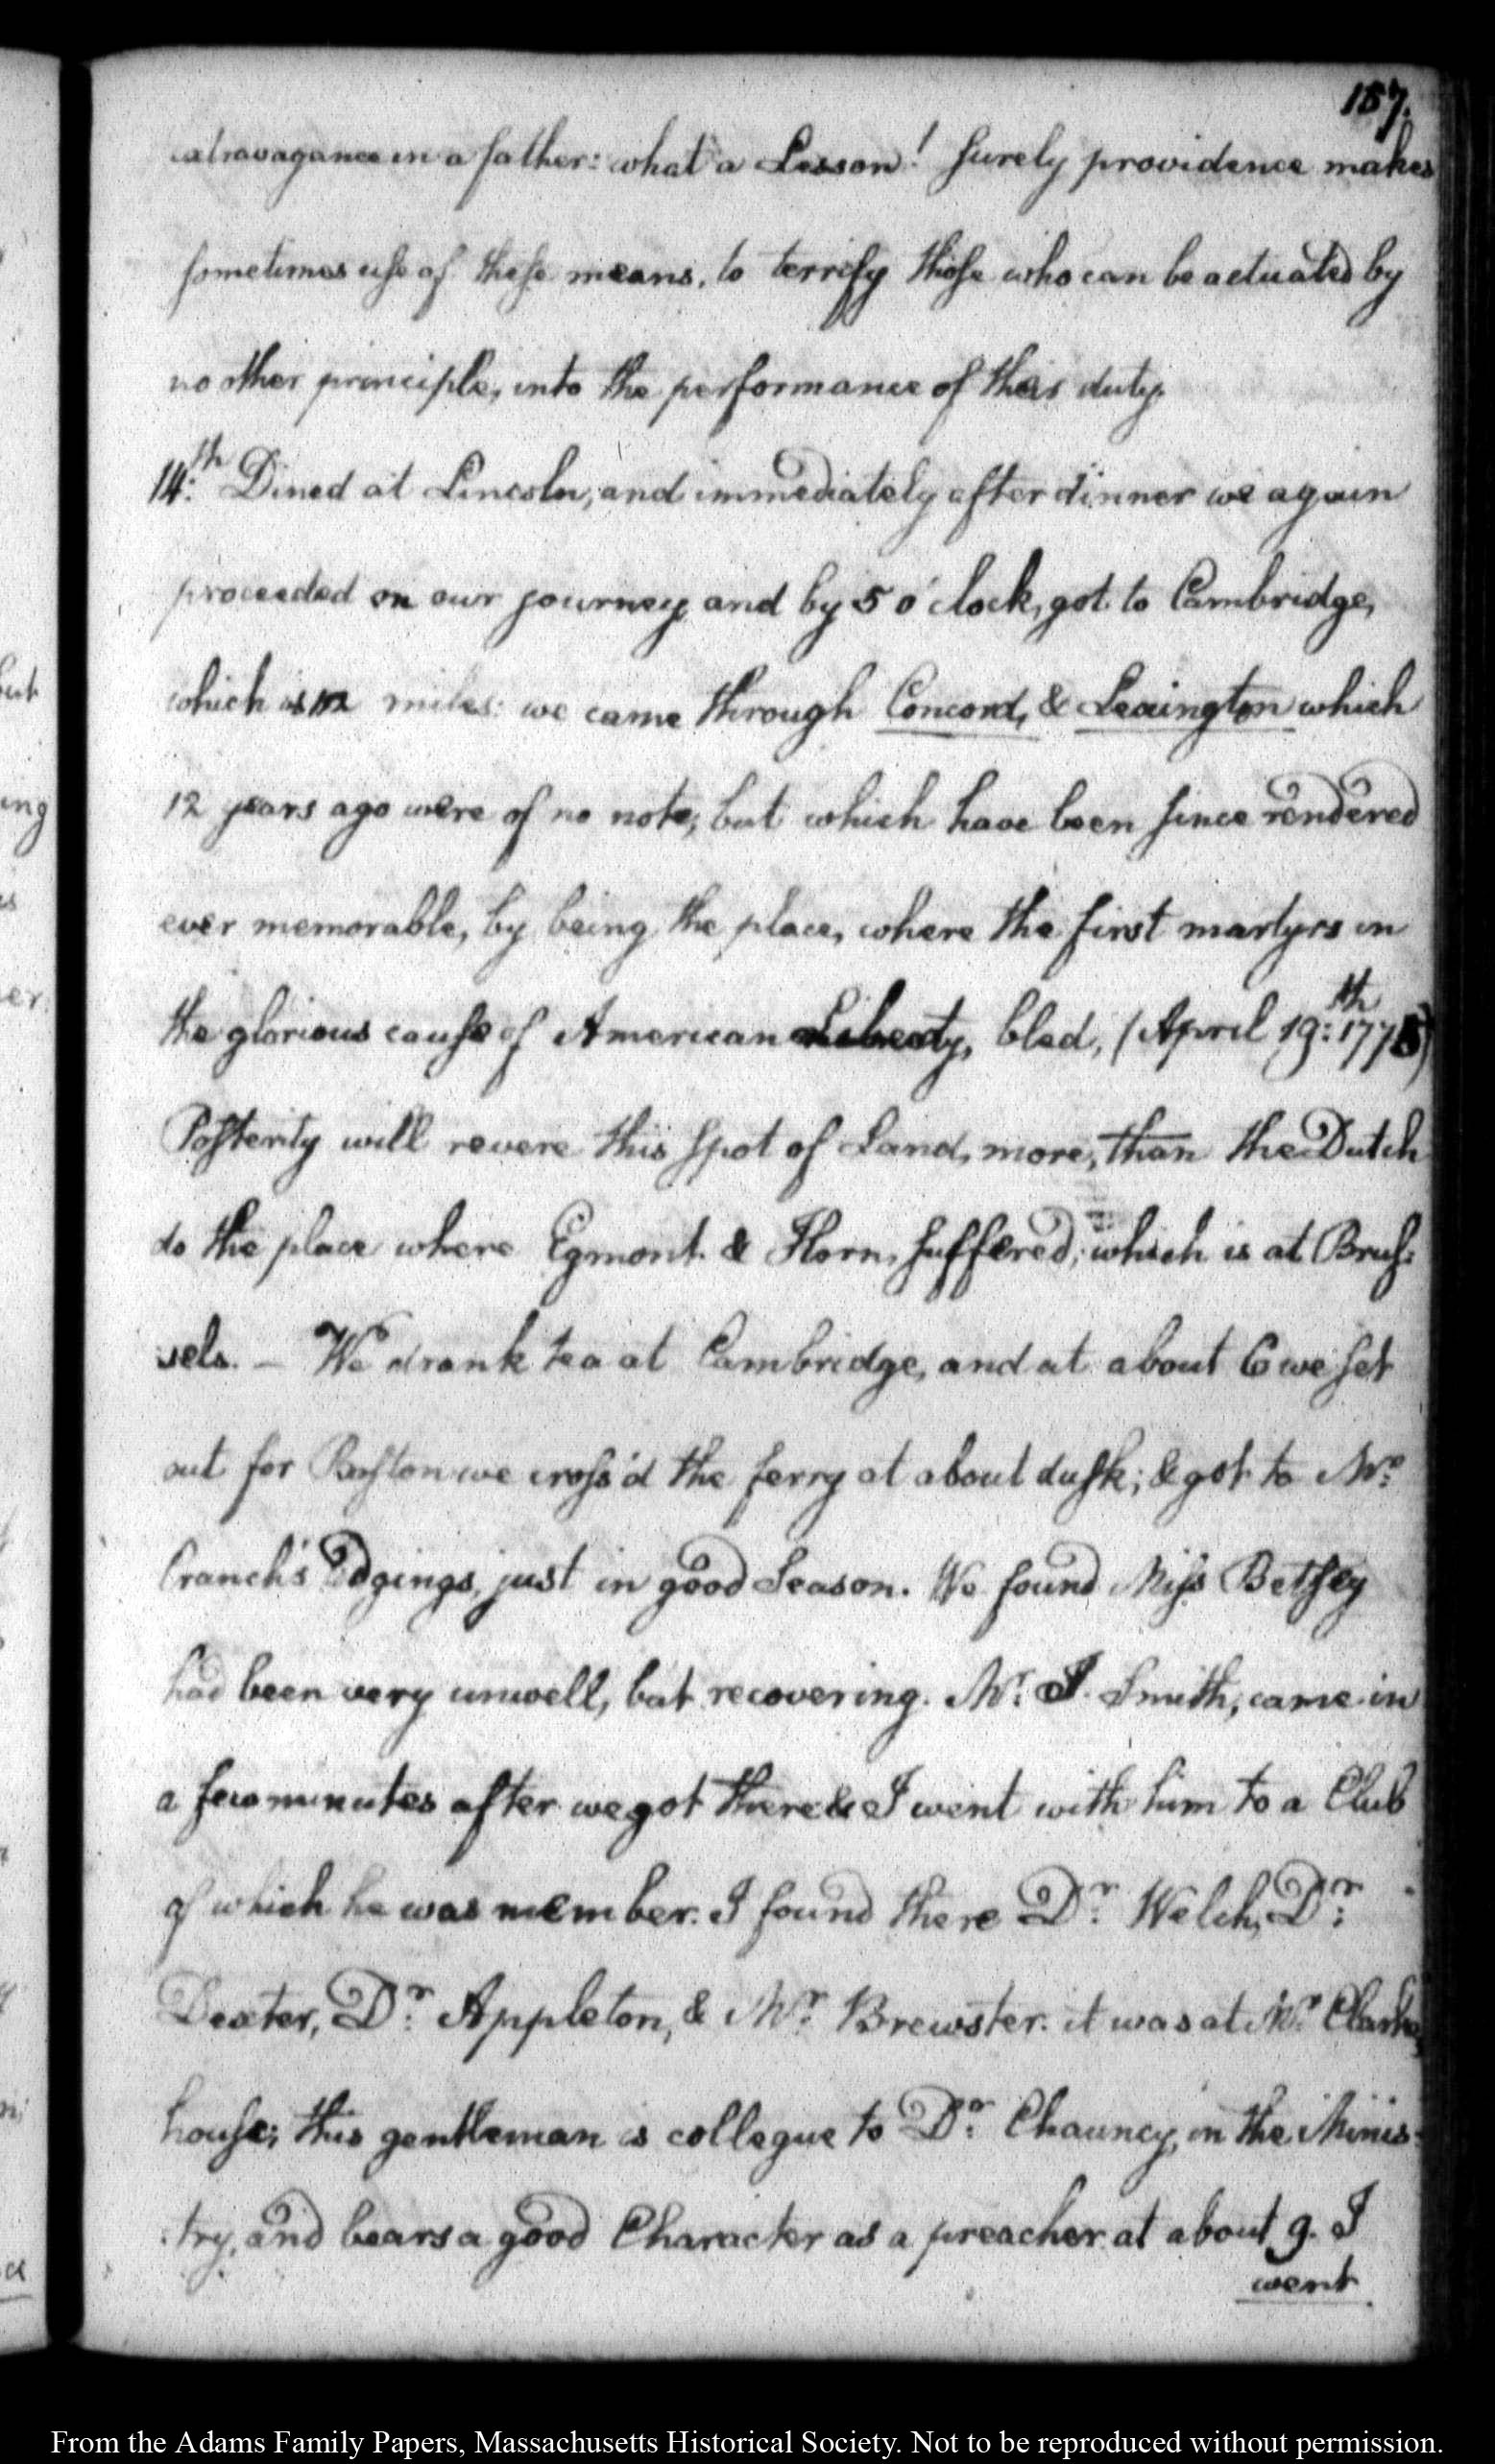 187.
extravagance in a father: what a Lesson! Surely providence makes
sometimes use of these means, to terrify those who can be actuated by
no other principle, into the performance of their duty.
14:th Dined at Lincoln, and immediately after dinner we again
proceeded on our journey, and by 5 o'clock, got to Cambridge,
which is miles: we came through Concord, & Lexington which
12 years ago were of no note, but which have been since rendered
ever memorable, by being the place, where the first martyrs in
the glorious cause of American Liberty, bled, (April 19:th 1775)
Posterity will revere this Spot of Land, more, than the Dutch
do the place where Egmont & Horn, suffered; which is at Brus:
sels. — We drank tea at Cambridge, and at about 6 we set
out for Boston we cross'd the ferry at about dusk; & got to Mr:
Cranch's lodgings, just in good Season. We found Miss Betsey
had been very unwell, but recovering. Mr: I. Smith, came in
a few minutes after we got there & I went with him to a Club
of which he was member. I found there Dr: Welch, Dr:
Dexter, Dr: Appleton, & Mr: Brewster. it was at Mr: Clarke's
house; this gentleman is collegue to Dr: Chauncy, in the Minis:
:try, and bears a good Character as a preacher. at about 9. I
went
but
ing
er.
From the Adams Family Papers, Massachusetts Historical Society. Not to be reproduced without permission.